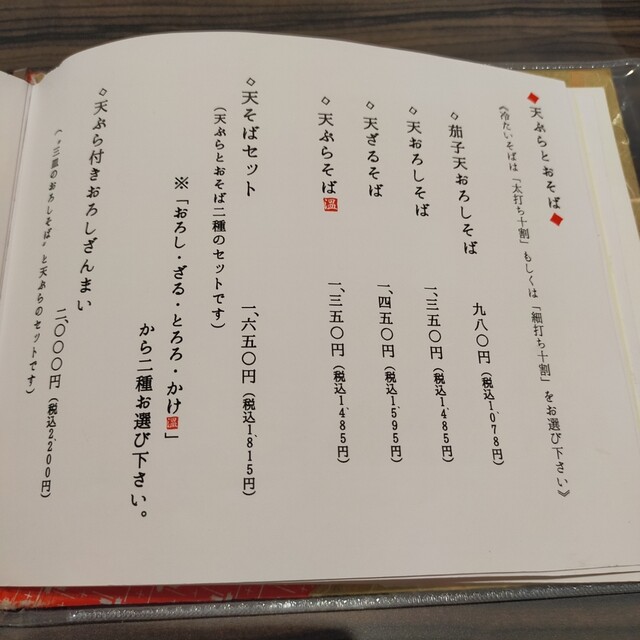 ◆天ぷらとおそば◆
《冷たいそばは「太打ち十割」もしくは「細打ち十割」をお選び下さい》
◇茄子天おろしそば 九八〇円（税込1,078円）
◇天おろしそば 一、三五〇円（税込1,485円）
◇天ざるそば 一、四五〇円（税込1,595円）
◇天ぷらそば温 一、三五〇円（税込1,485円）
◇天そばセット 一、六五〇円（税込1,815円）
（天ぷらとおそば二種のセットです）
※「おろし・ざる・とろろ・かけ温」
から二種お選び下さい。
◇天ぷら付きおろしざんまい 二、〇〇〇円（税込2,200円）
（〝三皿のおろしそば〟と天ぷらのセットです）